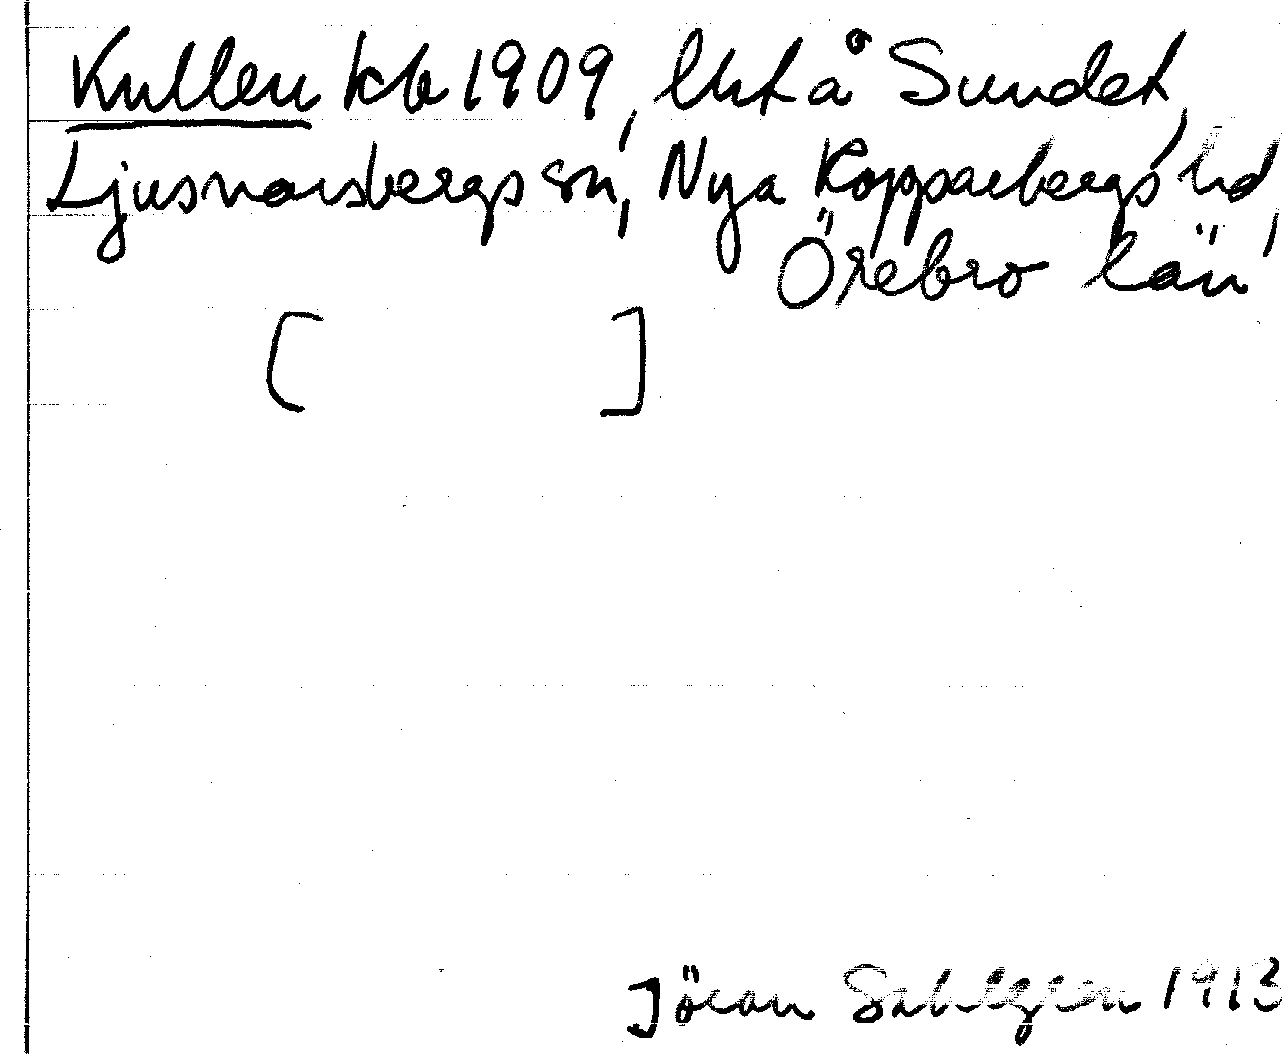 Kullen kb 1909, lht å Sundet,
Ljusnarsbergs sn, Nya Kopparbergs hd,
Örebro län
[ ]
Jöran Sahlgren 1913